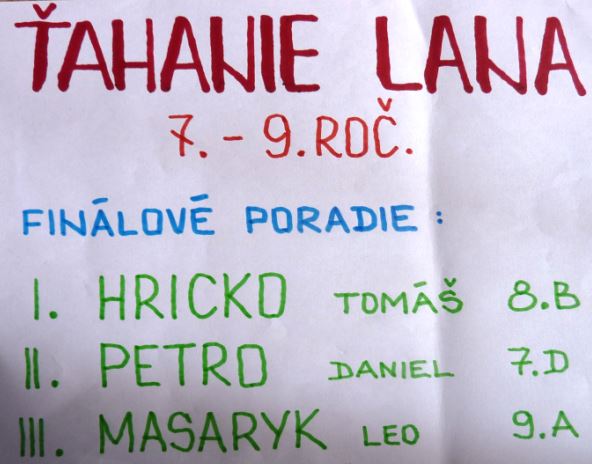 ŤAHANIE LANA
7. - 9. ROČ.
FINÁLOVÉ PORADIE :
I. HRICKO TOMÁŠ 8.B
II. PETRO DANIEL 7.D
III. MASARYK LEO 9.A